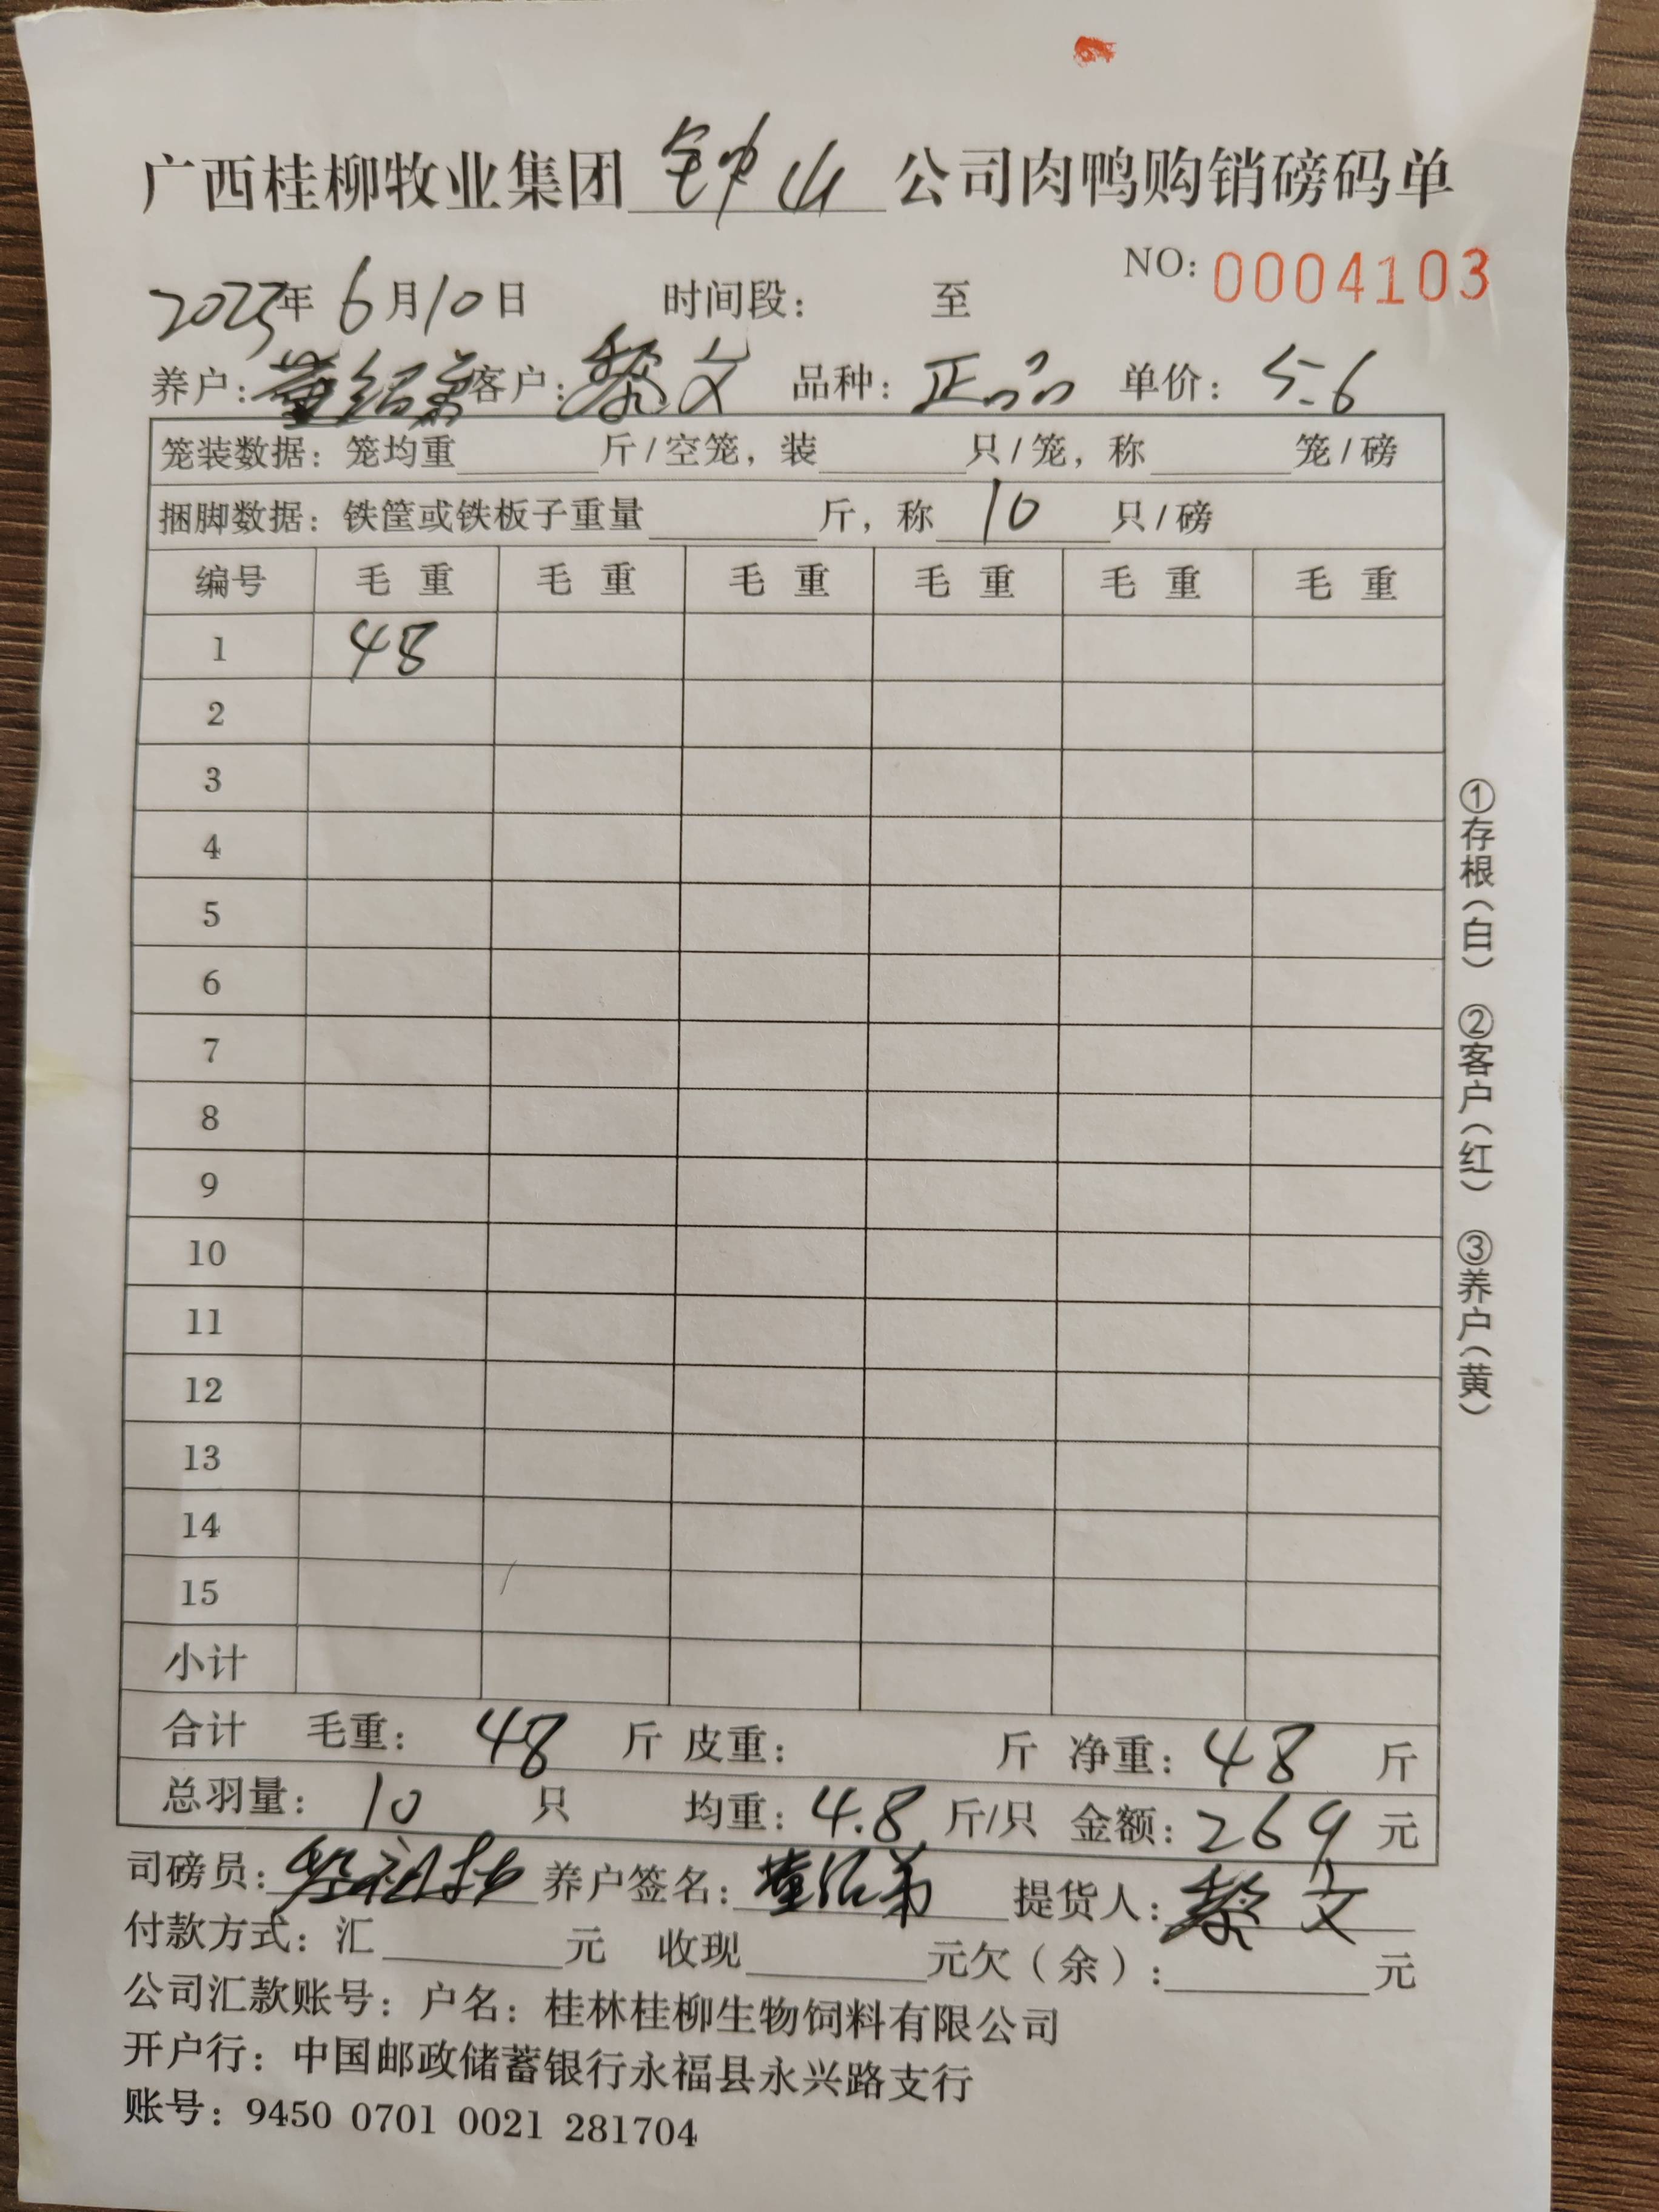 广西桂柳牧业集团 钟山 公司肉鸭购销磅码单
NO: 0004103
2025年 6月10日 时间段: 至
养户: 客户: 黎文 品种: 正品 单价: 5.6
笼装数据: 笼均重 斤/空笼, 装 只/笼, 称 笼/磅
捆脚数据: 铁筐或铁板子重量 斤, 称 10 只/磅
编号 毛重 毛重 毛重 毛重 毛重 毛重
1 48
2
3
4
5
6
7
8
9
10
11
12
13
14
15
小计
合计 毛重: 48 斤 皮重: 斤 净重: 48 斤
总羽量: 10 只 均重: 4.8 斤/只 金额: 269 元
司磅员: 养户签名: 提货人: 黎文
付款方式: 汇 元 收现 元欠(余): 元
公司汇款账号: 户名: 桂林桂柳生物饲料有限公司
开户行: 中国邮政储蓄银行永福县永兴路支行
账号: 9450 0701 0021 281704
①存根(白) ②客户(红) ③养户(黄)